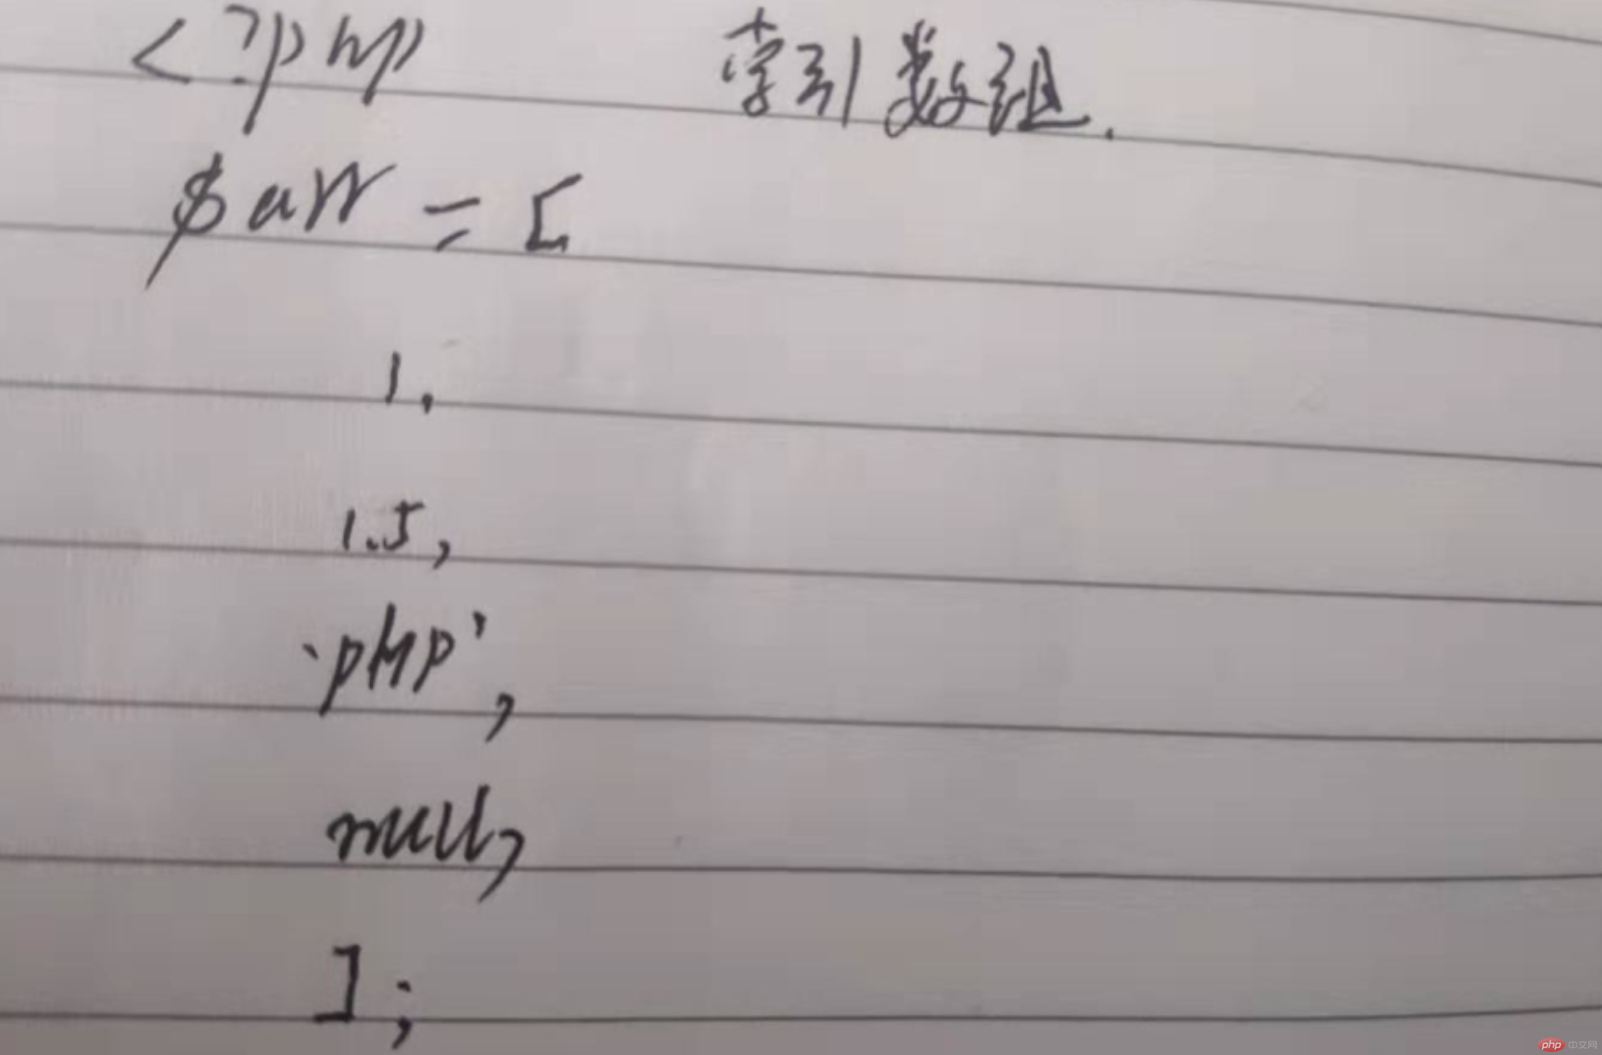 <?php 索引数组.
$arr = [
1,
1.5,
'PHP',
null,
];
php 中文网